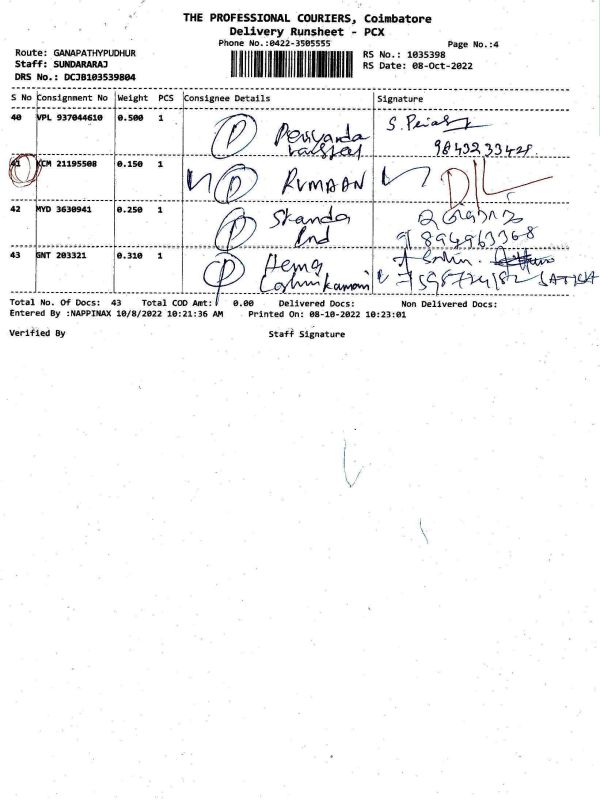 THE PROFESSIONAL COURIERS, Coimbatore
Delivery Runsheet - PCX
Phone No.:0422-3505555 Page No.:4
Route: GANAPATHYPUDHUR RS No.: 1035398
Staff: SUNDARARAJ RS Date: 08-Oct-2022
DRS No.: DCJB103539804
S No Consignment No Weight PCS Consignee Details Signature
40 VPL 937044610 0.500 1 P
41 KCM 21195508 0.150 1 P RUMAAN DIL
42 MYD 3630941 0.250 1 P Skanda Ind
43 GNT 203321 0.310 1 P Hema
Total No. Of Docs: 43 Total COD Amt: 0.00 Delivered Docs: Non Delivered Docs:
Entered By :NAPPINAX 10/8/2022 10:21:36 AM Printed On: 08-10-2022 10:23:01
Verified By Staff Signature